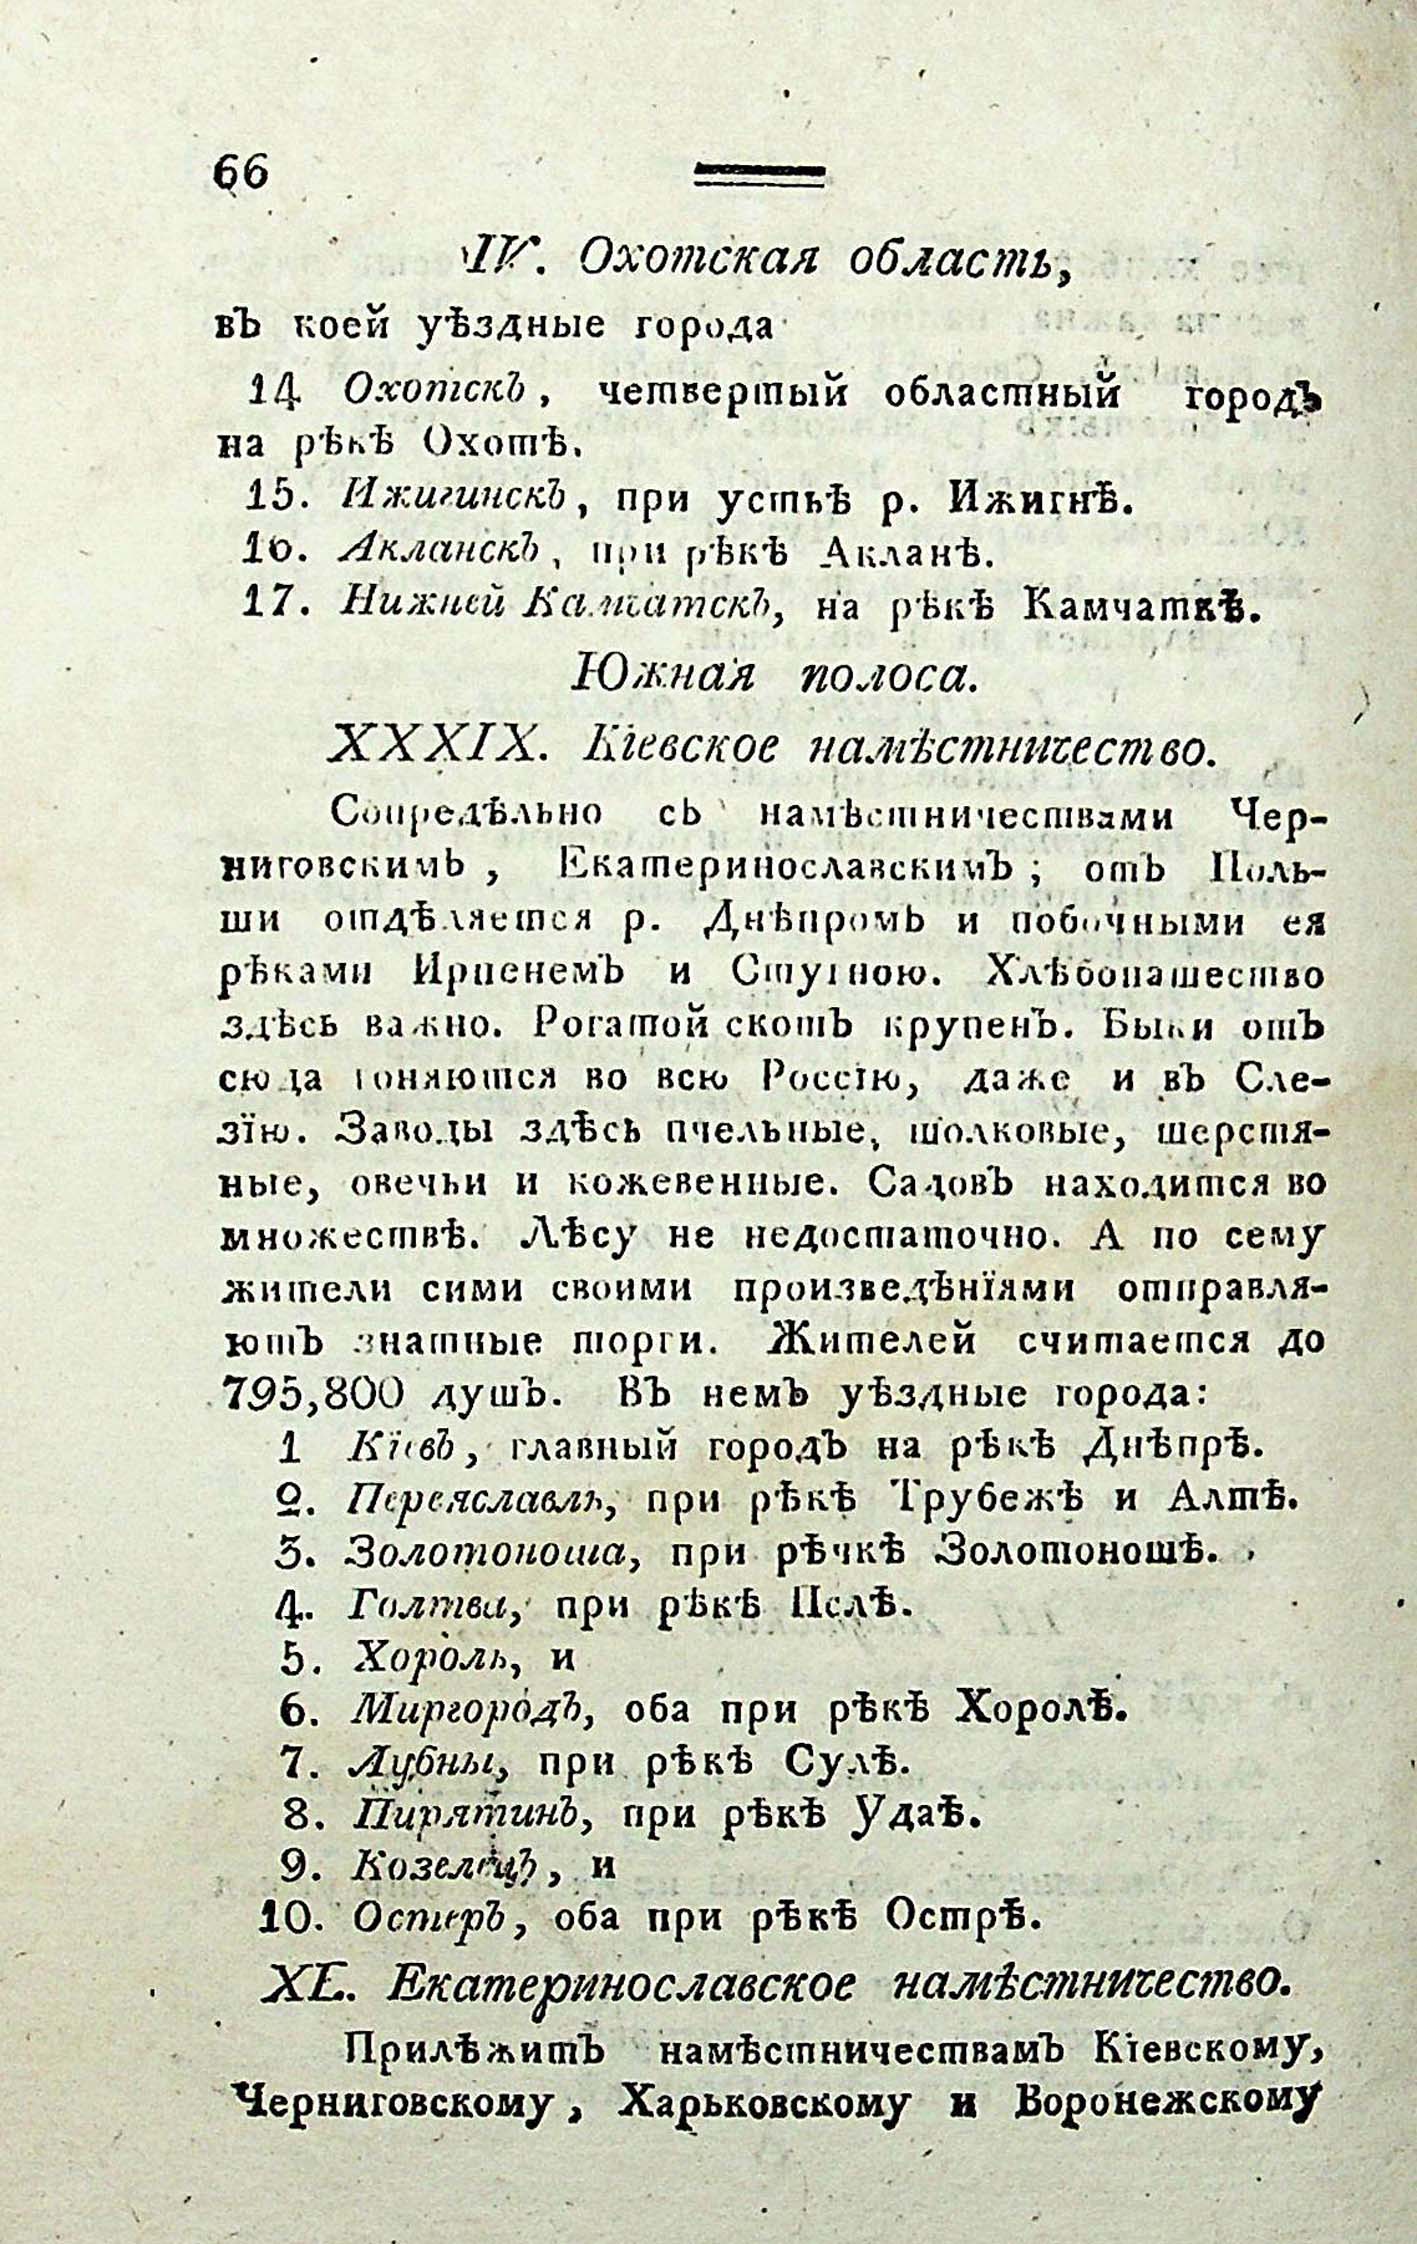 66
IV. Охотская область,
въ коей уѣздные города
14 Охотскъ, четвертый областный городъ
на рѣкѣ Охотѣ.
15. Ижигинскъ, при устьѣ р. Ижигнѣ.
16. Акланскъ, при рѣкѣ Акланѣ.
17. Нижней Камчатскъ, на рѣкѣ Камчаткѣ.
Южная полоса.
XXXIX. Кіевское намѣстничество.
Сопредѣльно съ намѣстничествами Чер-
ниговскимъ, Екатеринославскимъ; отъ Поль-
ши отдѣляется р. Днѣпромъ и побочными ея
рѣками Ирпенемъ и Стугною. Хлѣбопашество
здѣсь важно. Рогатой скотъ крупенъ. Быки отъ
сюда гоняются во всю Россїю, даже и въ Сле-
зїю. Заводы здѣсь пчельные, шолковые, шерстя-
ные, овечьи и кожевенные. Садовъ находится во
множествѣ. Лѣсу не недостаточно. А по сему
жители сими своими произведѣнїями отправля-
ютъ знатные торги. Жителей считается до
795,800 душъ. Въ немъ уѣздные города:
1 Кїевъ, главный городъ на рѣкѣ Днѣпрѣ.
2. Переяславль, при рѣкѣ Трубежѣ и Алтѣ.
3. Золотоноша, при рѣчкѣ Золотоношѣ.
4. Голтва, при рѣкѣ Пслѣ.
5. Хороль, и
6. Миргородъ, оба при рѣкѣ Хоролѣ.
7. Лубны, при рѣкѣ Сулѣ.
8. Пирятинъ, при рѣкѣ Удаѣ.
9. Козелецъ, и
10. Остеръ, оба при рѣкѣ Острѣ.
XL. Екатеринославское намѣстничество.
Прилѣжитъ намѣстничествамъ Кїевскому,
Черниговскому, Харьковскому и Воронежскому